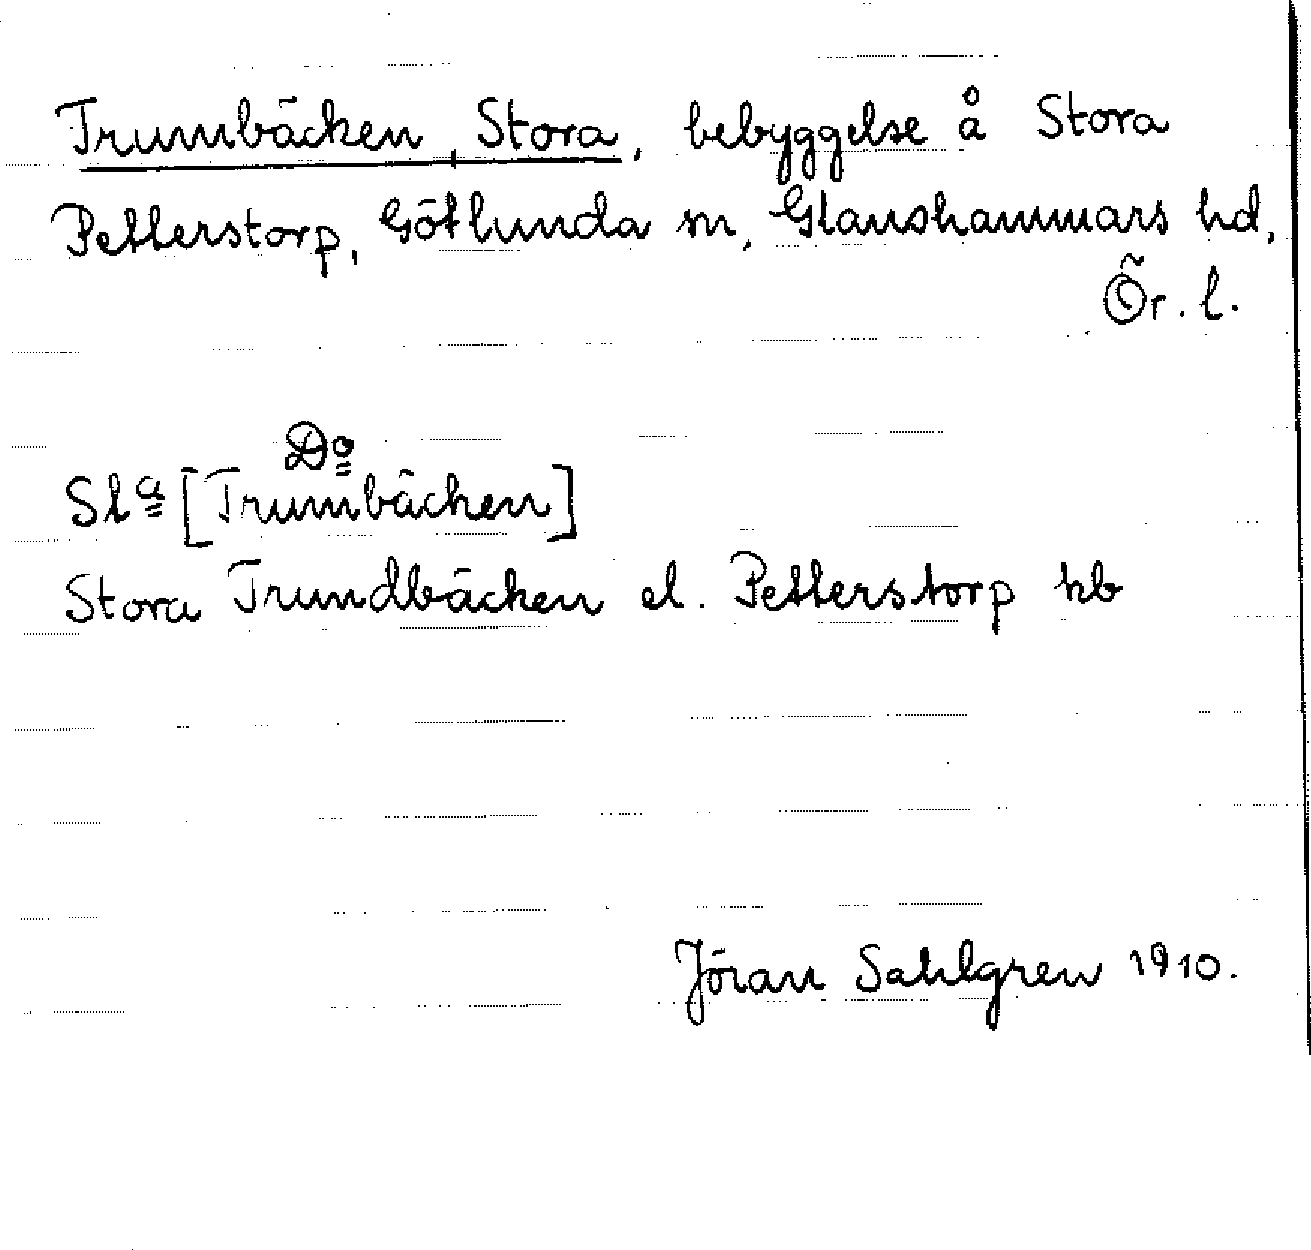 Trumbäcken, Stora, bebyggelse å Stora
Petterstorp, Götlunda sn, Glanshammars hd,
Ör. l.
Do
Sla [Trumbäcken]
Stora Trundbäcken el. Petterstorp kb
Jöran Sahlgren 1910.